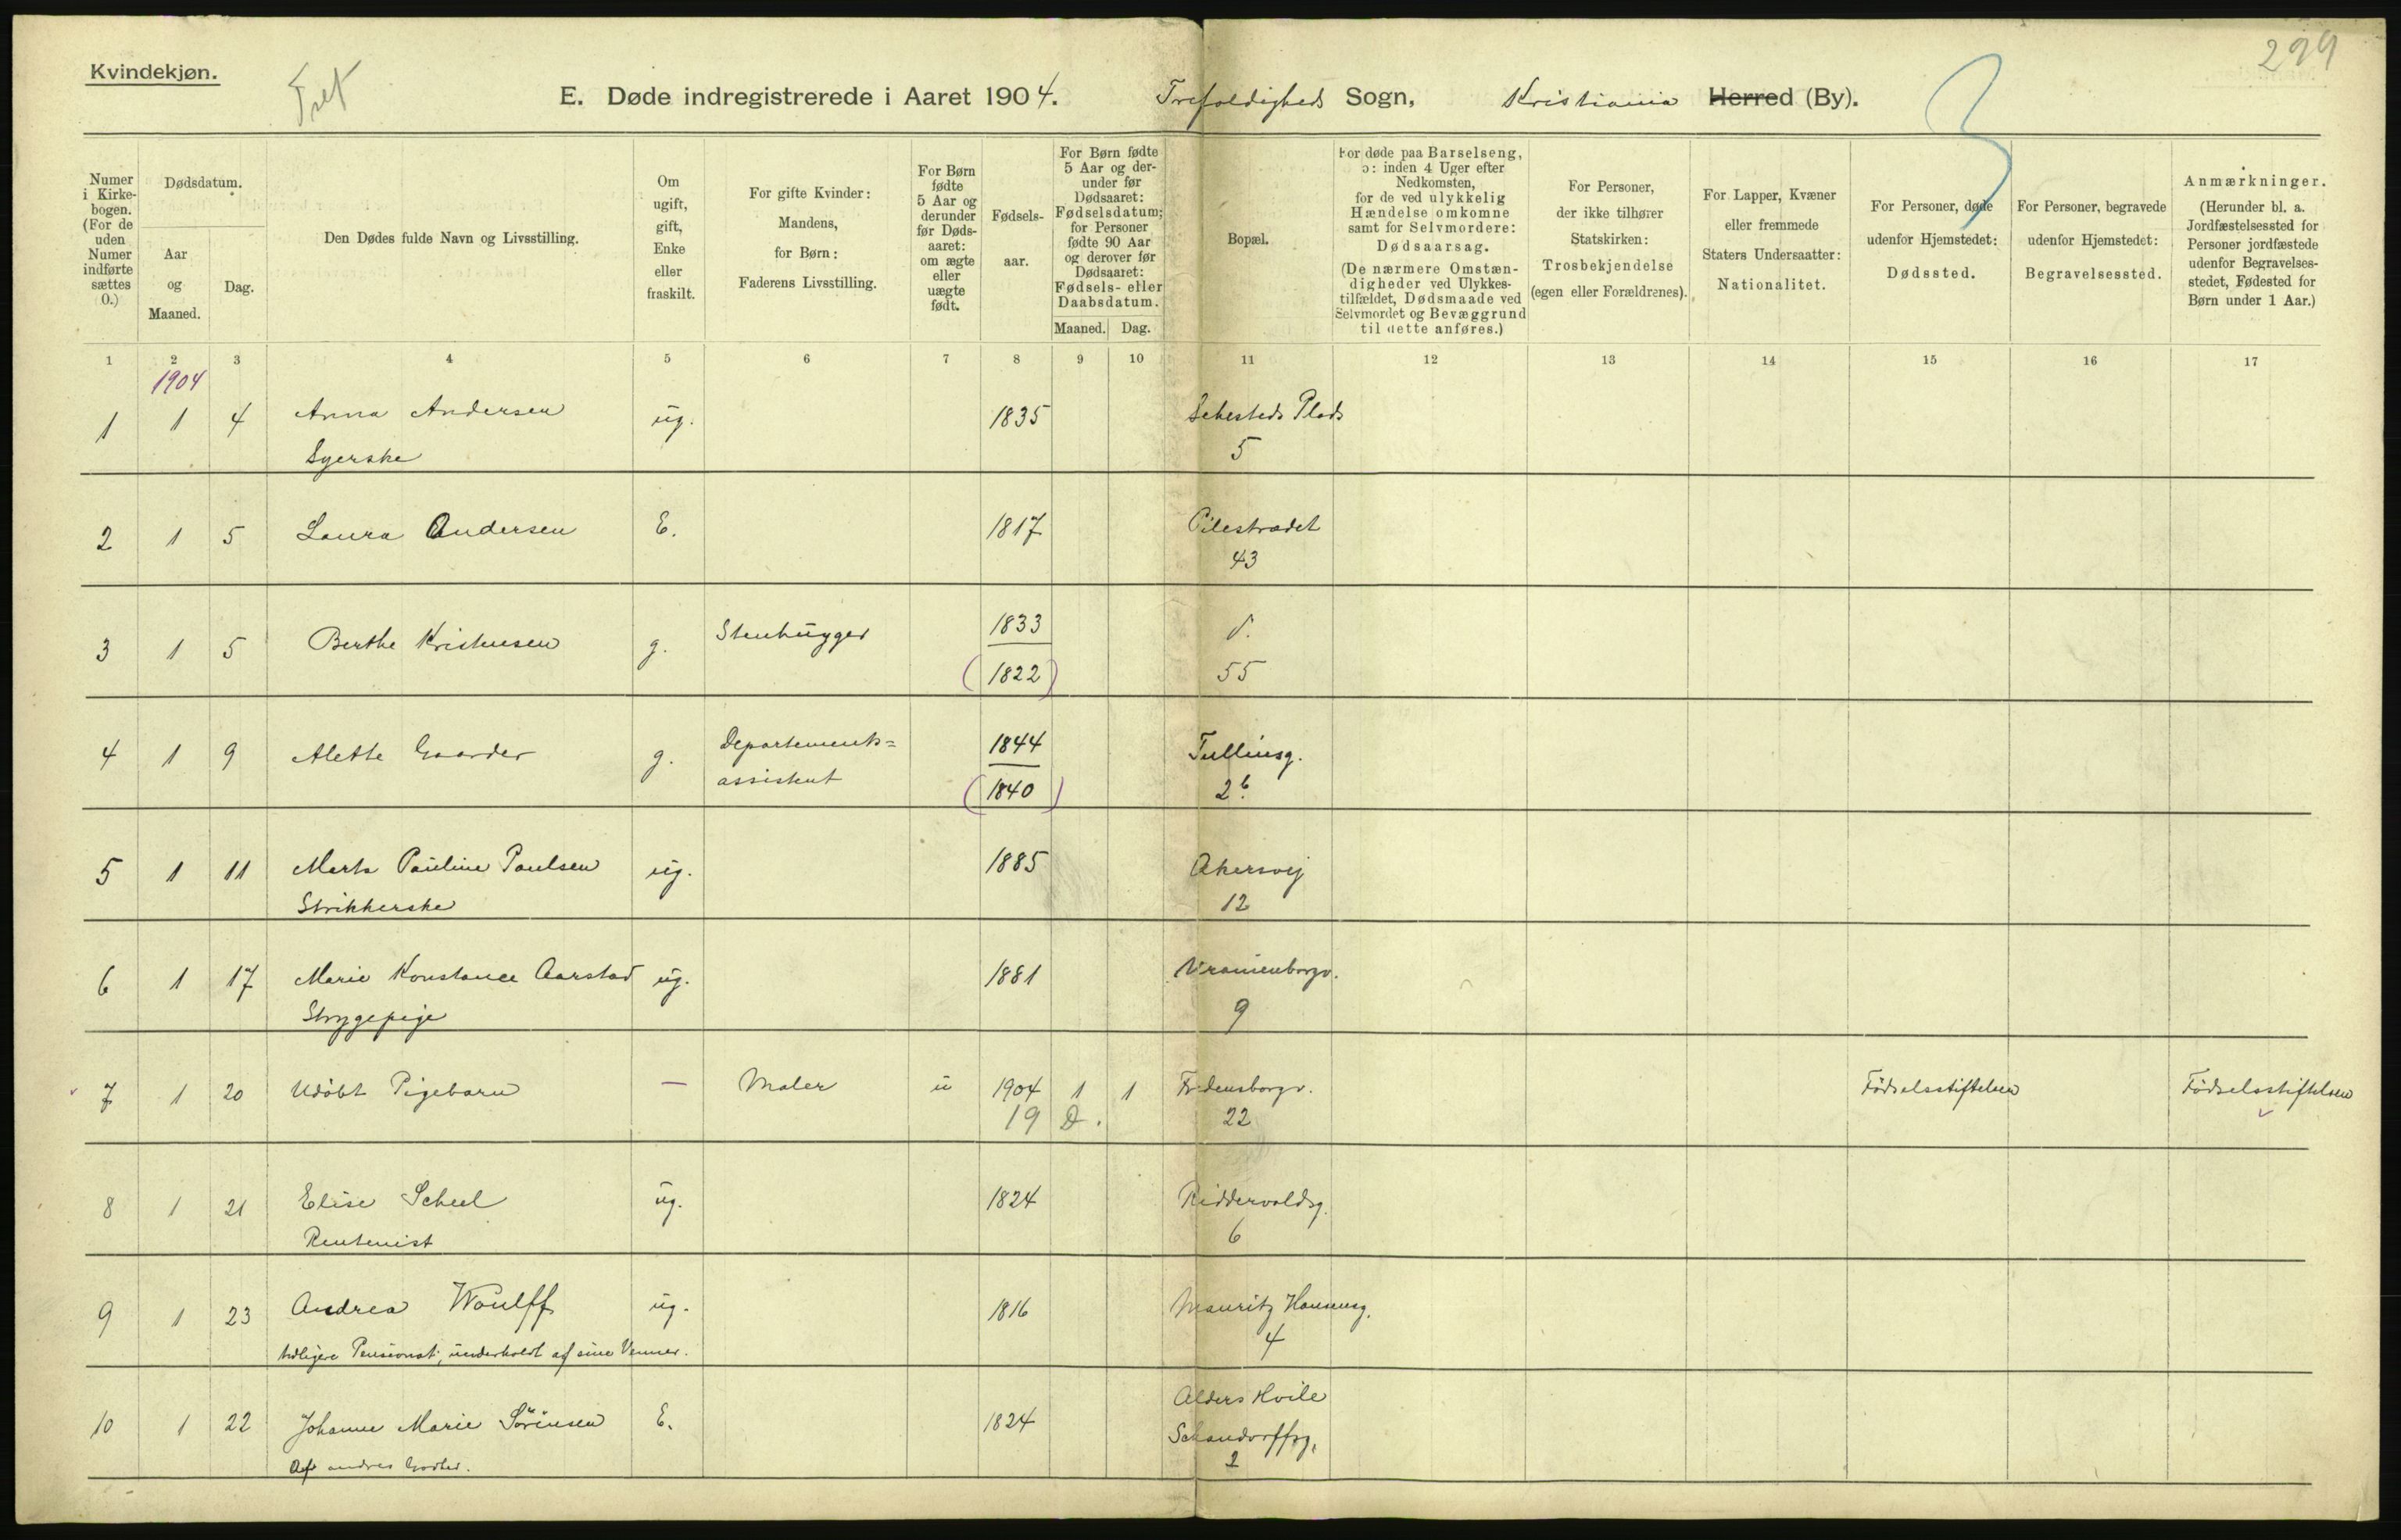 Kvindekjøn.
Tref
299
3
E. Døde indregistrerede i Aaret 1904. Trefoldigheds Sogn, Kristiania Herred (By).
Numer i Kirkebogen. (For de uden Numer indførte sættes 0.)
Dødsdatum.
Aar og Maaned.
Dag.
Den Dødes fulde Navn og Livsstilling.
Om ugift, gift, Enke eller fraskilt.
For gifte Kvinder: Mandens, for Børn: Faderens Livsstilling.
For Børn fødte 5 Aar og derunder før Dødsaaret: om ægte eller uægte født.
Fødselsaar.
For Børn fødte 5 Aar og derunder før Dødsaaret: Fødselsdatum; for Personer fødte 90 Aar og derover før Dødsaaret: Fødsels- eller Daabsdatum.
Maaned. Dag.
Bopæl.
For døde paa Barselseng, ɔ: inden 4 Uger efter Nedkomsten, for de ved ulykkelig Hændelse omkomne samt for Selvmordere: Dødsaarsag. (De nærmere Omstændigheder ved Ulykkestilfældet, Dødsmaade ved Selvmordet og Bevæggrund til dette anføres.)
For Personer, der ikke tilhører Statskirken: Trosbekjendelse (egen eller Forældrenes).
For Lapper, Kvæner eller fremmede Staters Undersaatter: Nationalitet.
For Personer, døde udenfor Hjemstedet: Dødssted.
For Personer, begravede udenfor Hjemstedet: Begravelsessted.
Anmærkninger. (Herunder bl. a. Jordfæstelsessted for Personer jordfæstede udenfor Begravelsesstedet, Fødested for Børn under 1 Aar.)
1 2 3 4 5 6 7 8 9 10 11 12 13 14 15 16 17
1904
1 1 4 Anna Andersen ug. 1835 Sehesteds Plads
Syerske 5
2 1 5 Laura Andersen E. 1817 Pilestrædet
43
3 1 5 Berthe Kristensen g. Stenhugger 1833 d.
(1822) 55
4 1 9 Alette Gaarder g. Departements= 1844 Tullinsg.
assistent (1840) 2b.
5 1 11 Marta Pauline Paulsen ug. 1885 Akersvej
Strikkerske 12
6 1 17 Marie Konstance Aarstad ug. 1881 Uranienborgv.
Strygepige 9
7 1 20 Udøbt Pigebarn — Maler u 1904 1 1 Fredensborgv. Fødselsstiftelsen Fødselsstiftelsen
19 D. 22
8 1 21 Elise Scheel ug. 1824 Riddervoldsg.
Rentenist 6
9 1 23 Andrea Woulff ug. 1816 Mauritz Hansensg.
tidligere Pensionist, underholdt af sine Venner. 4
10 1 22 Johanne Marie Sørensen E. 1824 Alders Hvile
Schandorffsg.
Af andres Godhed. 2